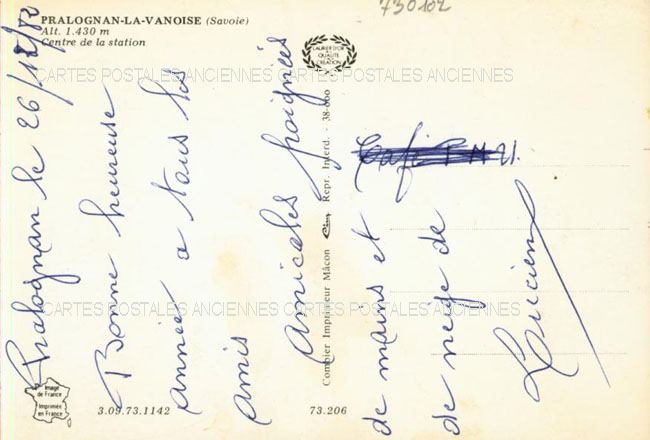 730102
PRALOGNAN-LA-VANOISE (Savoie)
Alt. 1.430 m
Centre de la station
LAURIER D'OR
DE
QUALITÉ
ET
CRÉATION
CARTES POSTALES ANCIENNES CARTES POSTALES ANCIENNES
CARTES POSTALES ANCIENNES CARTES POSTALES ANCIENNES
Pralognan le 26/12/82
Bonne heureuse
année a tous les
amis
Amicales poignées
de mains et
de neige de
Lucien
Combier Imprimeur Mâcon Cim Repr. Interd. - 38-000
Image
de France
Imprimée
en France
3.09.73.1142
73.206